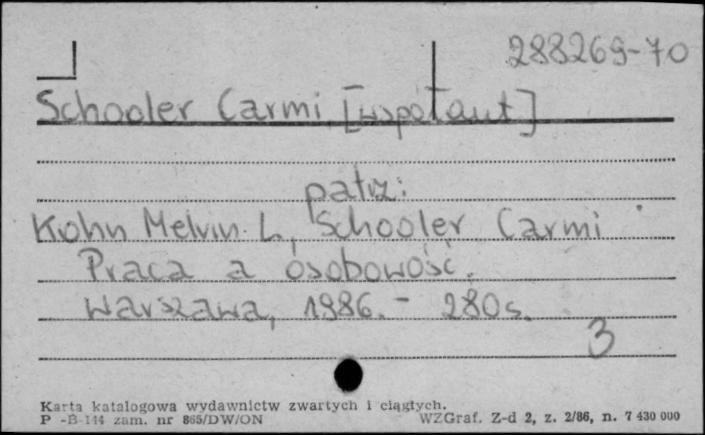 288269-70
Schooler Carmi [współaut]
patrz:
Kohn Melvin L., Schooler Carmi
Praca a osobowość.
Warszawa, 1986. - 280s.
3
Karta katalogowa wydawnictw zwartych i ciągłych.
P -B-144 zam. nr 865/DW/ON WZGraf. Z-d 2, z. 2/86, n. 7 430 000